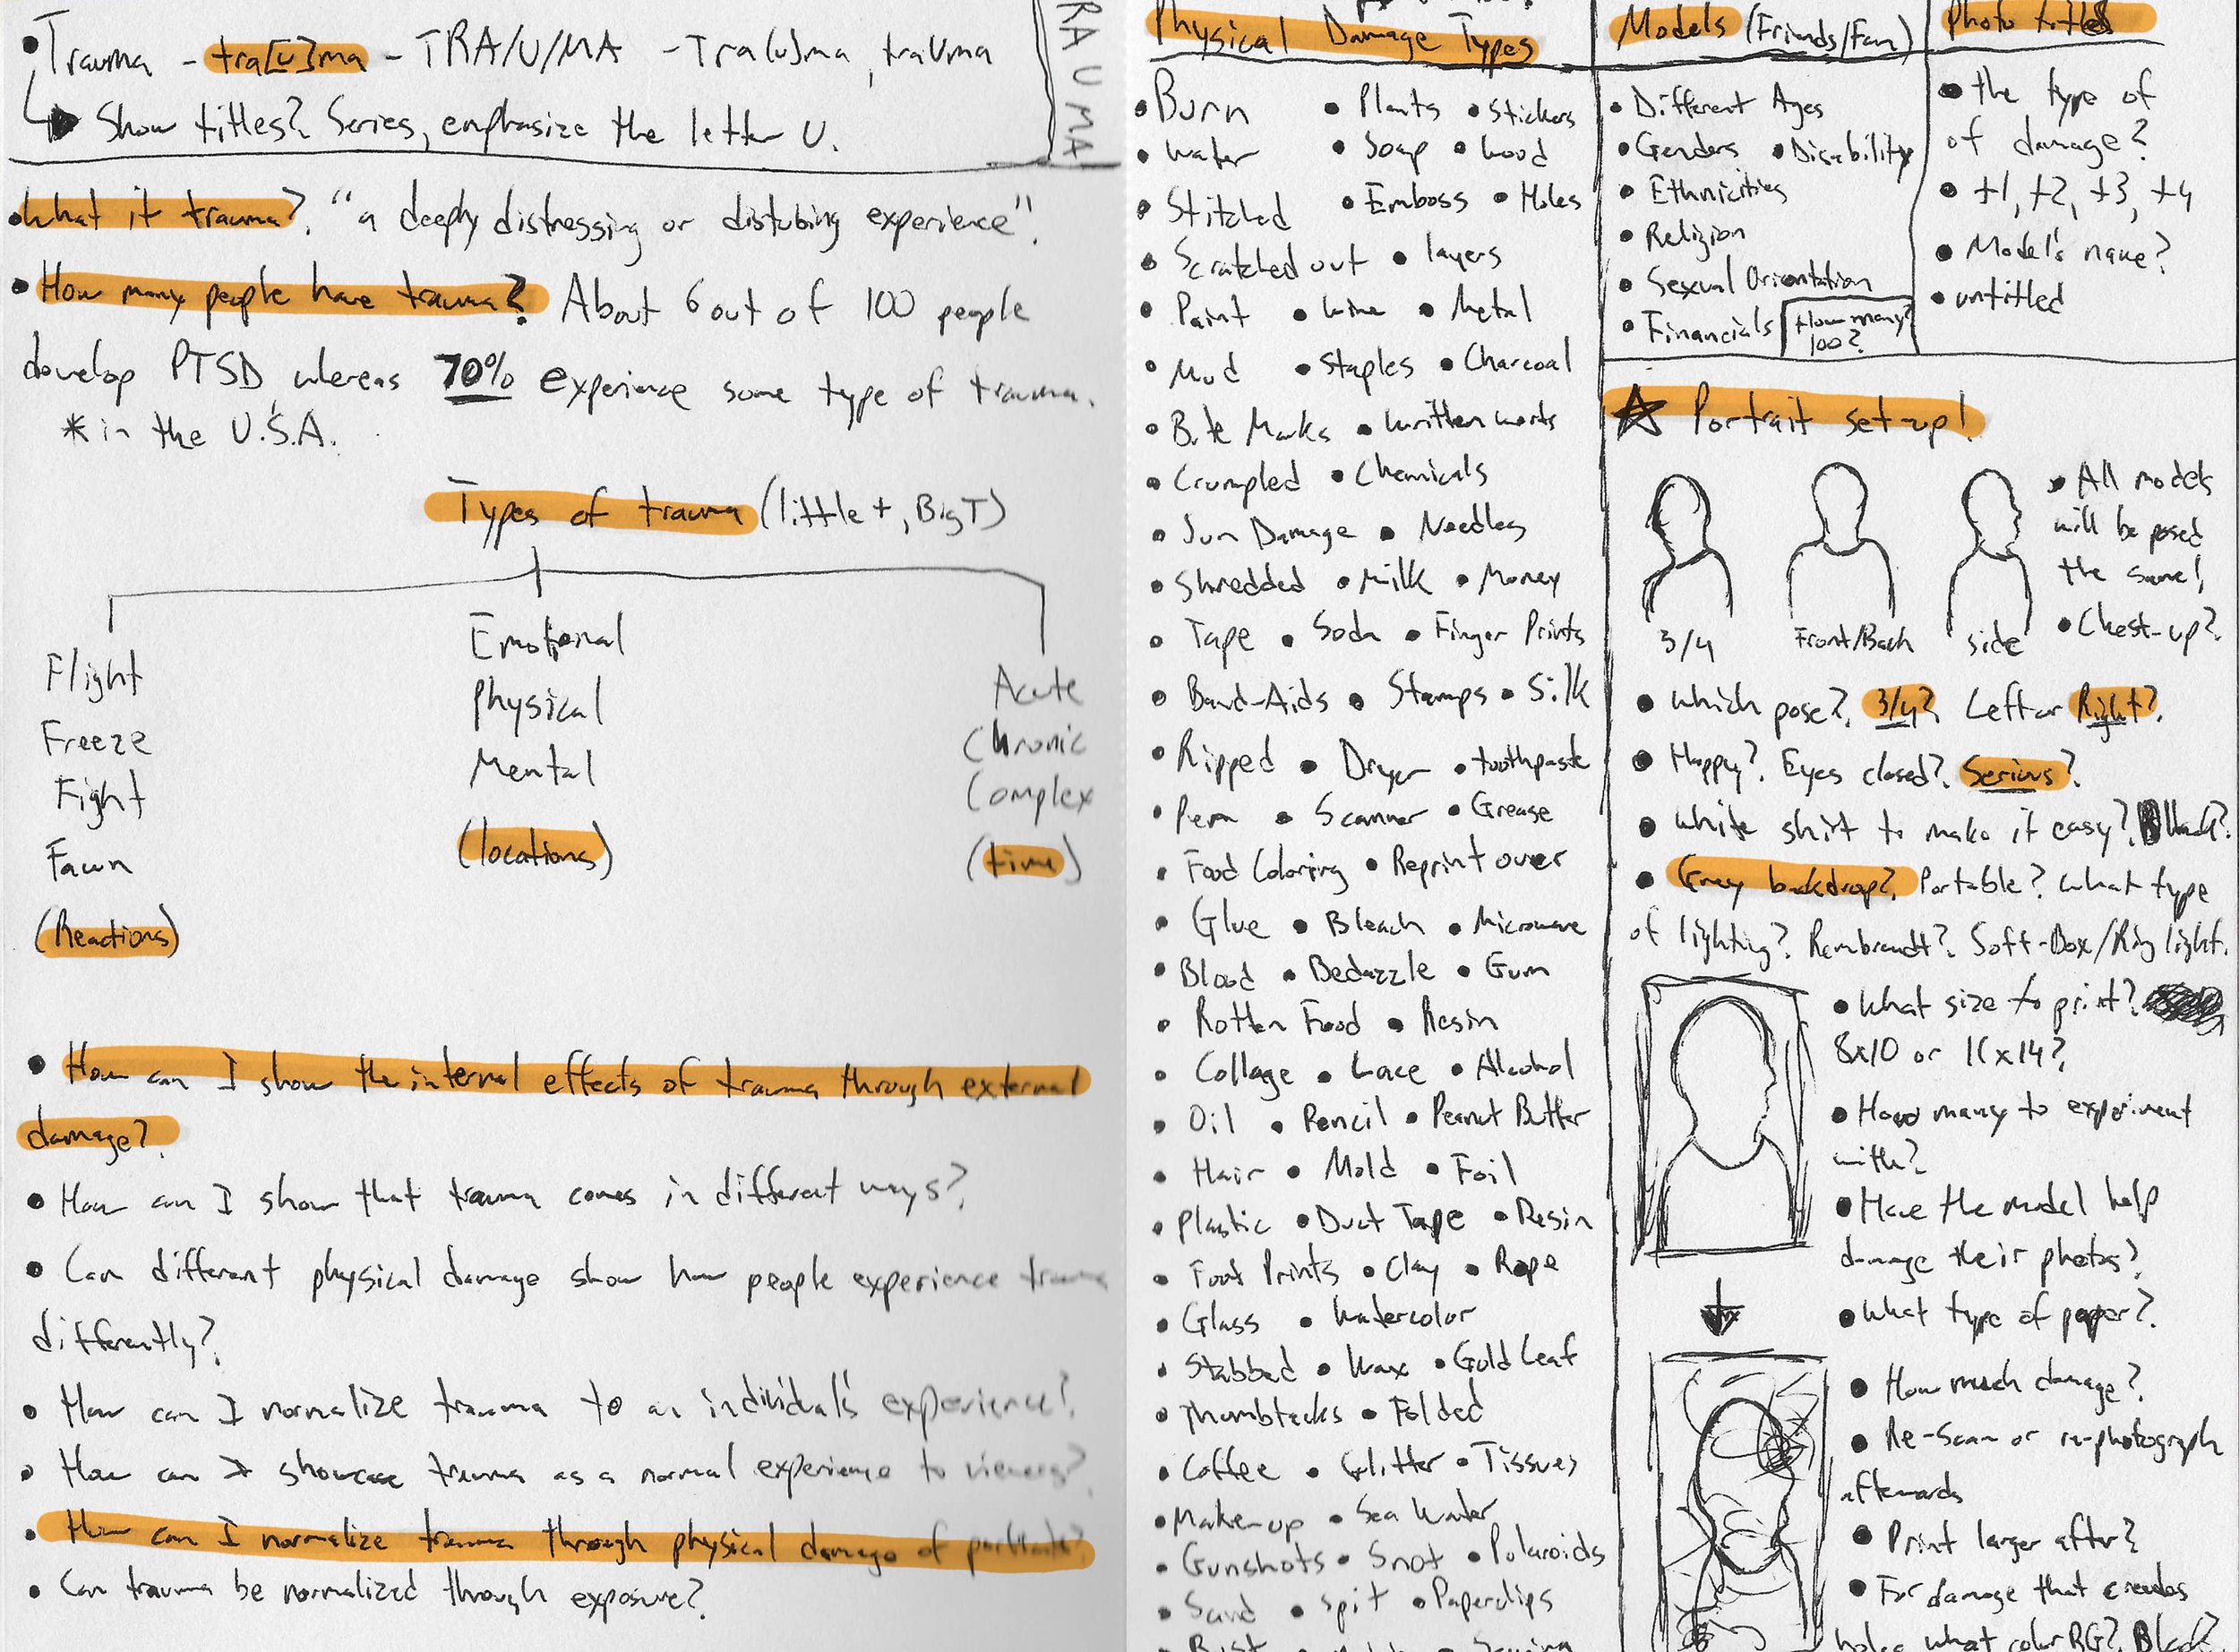 • Trauma - tra[u]ma - TRA/U/MA - Tra(u)ma, traUma
Show titles? Series, emphasize the letter U.
RAUMA
• What it trauma? "a deeply distressing or distubing experience".
• How many people have trauma? About 6 out of 100 people
develop PTSD whereas 70% experience some type of trauma.
*in the U.S.A.
Types of trauma (little t, Big T)
Flight
Freeze
Fight
Fawn
(Reactions)
Emotional
Physical
Mental
(locations)
Acute
Chronic
Complex
(time)
• How can I show the internal effects of trauma through external
damage?
• How can I show that trauma comes in different ways?
• Can different physical damage show how people experience trauma
differently?
• How can I normalize trauma to an individual's experience?
• How can I showcase trauma as a normal experience to viewers?
• How can I normalize trauma through physical damage of portraits?
• Can trauma be normalized through exposure?
Physical Damage Types
• Burn • Plants • Stickers
• Water • Soap • Wood
• Stitched • Emboss • Holes
• Scratched out • layers
• Paint • Wine • Metal
• Mud • Staples • Charcoal
• Bite Marks • Written words
• Crumpled • Chemicals
• Sun Damage • Needles
• Shredded • Milk • Money
• Tape • Soda • Finger Prints
• Band-Aids • Stamps • Silk
• Ripped • Dryer • toothpaste
• Pern • Scanner • Grease
• Food Coloring • Reprint over
• Glue • Bleach • Microwave
• Blood • Bedazzle • Gum
• Rotten Food • Resin
• Collage • Lace • Alcohol
• Oil • Pencil • Peanut Butter
• Hair • Mold • Foil
• Plastic • Duct Tape • Resin
• Foot Prints • Clay • Rope
• Glass • Watercolor
• Stabbed • Wax • Gold Leaf
• Thumbtacks • Folded
• Coffee • Glitter • Tissues
• Make-up • Sea Water
• Gunshots • Snot • Polaroids
• Sand • Spit • Paperclips
Models (Friends/Fam)
• Different Ages
• Genders • Disability
• Ethnicities
• Religion
• Sexual Orientation
• Financials
How many?
100?
Photo titles
• the type of
of damage?
• +1, +2, +3, +4
• Model's name?
• untitled
Portrait set-up!
3/4
Front/Back
side
• All models
will be posed
the same!
• Chest-up?
• Which pose? 3/4? Left or Right?
• Happy? Eyes closed? Serious?
• White shirt to make it easy? Black?
• Grey backdrop? Portable? What type
of lighting? Rembrandt? Soft-Box/Ring light.
• What size to print?
8x10 or 11x14?
• How many to experiment
with?
• Have the model help
damage their photos?
• What type of paper?
• How much damage?
• Re-Scan or re-photograph
afterwards
• Print larger after?
• For damage that creates
holes what color BG? Black?